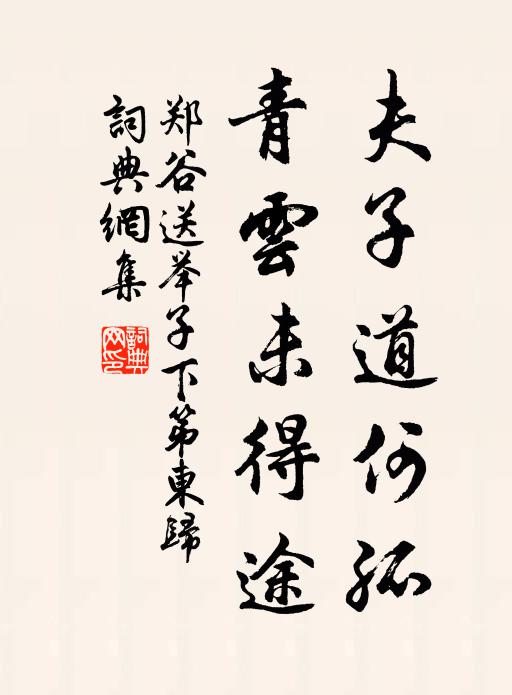 夫子道何孤
青雲未得途
郑谷送举子下第東歸
詞典網集
詞典网印